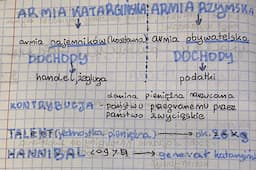 ARMIA KATARGIŃSKA ARMIA RZYMSKA
armia najemników (kosztowna) armia obywatelska
DOCHODY DOCHODY
handel, żegluga podatki
danina pieniężna narzucana
KONTRYBUCJA - państwu przegranemu przez
państwo zwycięskie
TALENT (jednostka pieniężna) → ok. 26 kg
HANNIBAL → generał kartagiń